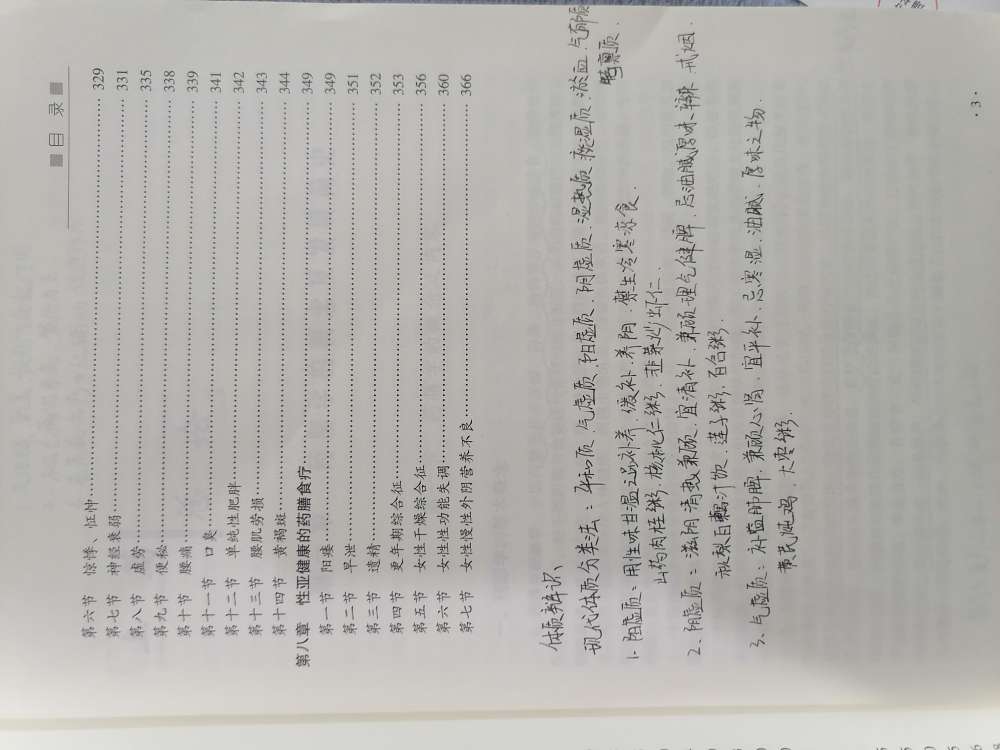 ■ 目 录 ■
第六节 惊悸、怔忡 329
第七节 神经衰弱 331
第八节 虚劳 335
第九节 便秘 338
第十节 腰痛 339
第十一节 口臭 341
第十二节 单纯性肥胖 342
第十三节 腰肌劳损 343
第十四节 黄褐斑 344
第八章 性亚健康的药膳食疗 349
第一节 阳痿 349
第二节 早泄 351
第三节 遗精 352
第四节 更年期综合征 353
第五节 女性干燥综合征 356
第六节 女性性功能失调 360
第七节 女性慢性外阴营养不良 366
体质辨识、
现代体质分类法：平和质 气虚质、阳虚质、阴虚质、湿热质 痰湿质 淤血 气郁质
特禀质.
1. 阳虚质：用性味甘温之品补养 缓补.养阴. 禁生冷寒凉食.
山药肉桂粥 核桃仁粥. 韭菜炒虾仁.
2、阴虚质：滋阴清热兼顾. 宜清补. 兼顾理气健脾. 忌油腻厚味、辛辣. 戒烟.
秋梨白藕汁饮. 莲子粥. 百合粥.
3、气虚质：补益肺脾. 兼顾心肾. 宜平补. 忌寒湿. 油腻. 厚味之物.
黄芪炖鸡. 大枣粥.
· 3 ·